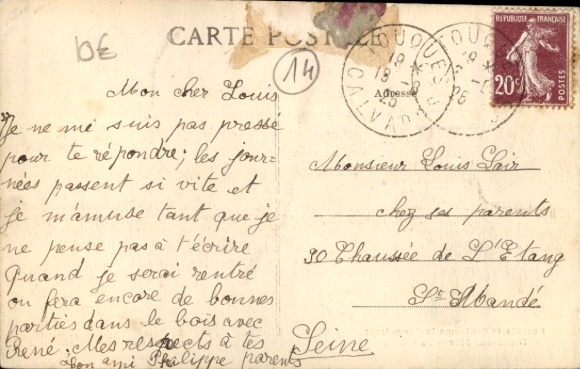 DE
CARTE POSTALE
14
TOUQUES
18 *
18 -8
25
CALVADOS
RÉPUBLIQUE FRANÇAISE
20c
POSTES
Adresse
Mon cher Louis
Je ne me suis pas pressé
pour te répondre; les jour-
nées passent si vite et
je m'amuse tant que je
ne pense pas à t'écrire
Quand je serai rentré
on fera encore de bonnes
parties dans le bois avec
René. Mes respects à tes
parents
Ton ami Philippe
Monsieur Louis Lair
chez ses parents
30 Chaussée de L'Etang
St Mandé
Seine